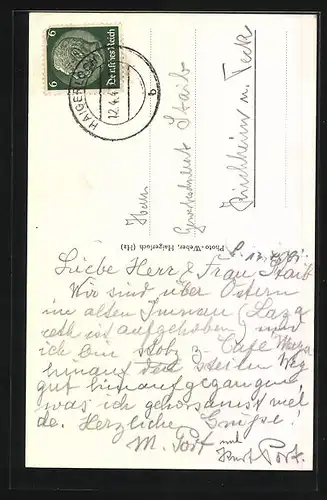 6
6
Deutsches Reich
HAIGERLOCH
12.4.4
b
Herrn
Staib
Kirchheim u. Teck
Photo-Weber, Haigerloch (Hz)
Liebe Herr & Frau Staib
Wir sind über Ostern
im alten Imnau (Laza
reth ist aufgehoben) und
ich bin stolz z. Café
hinauf den steilen Weg
gut hinaufgegangen,
was ich gehorsamst mel
de. Herzliche Grüsse!
M. Port und
Port.